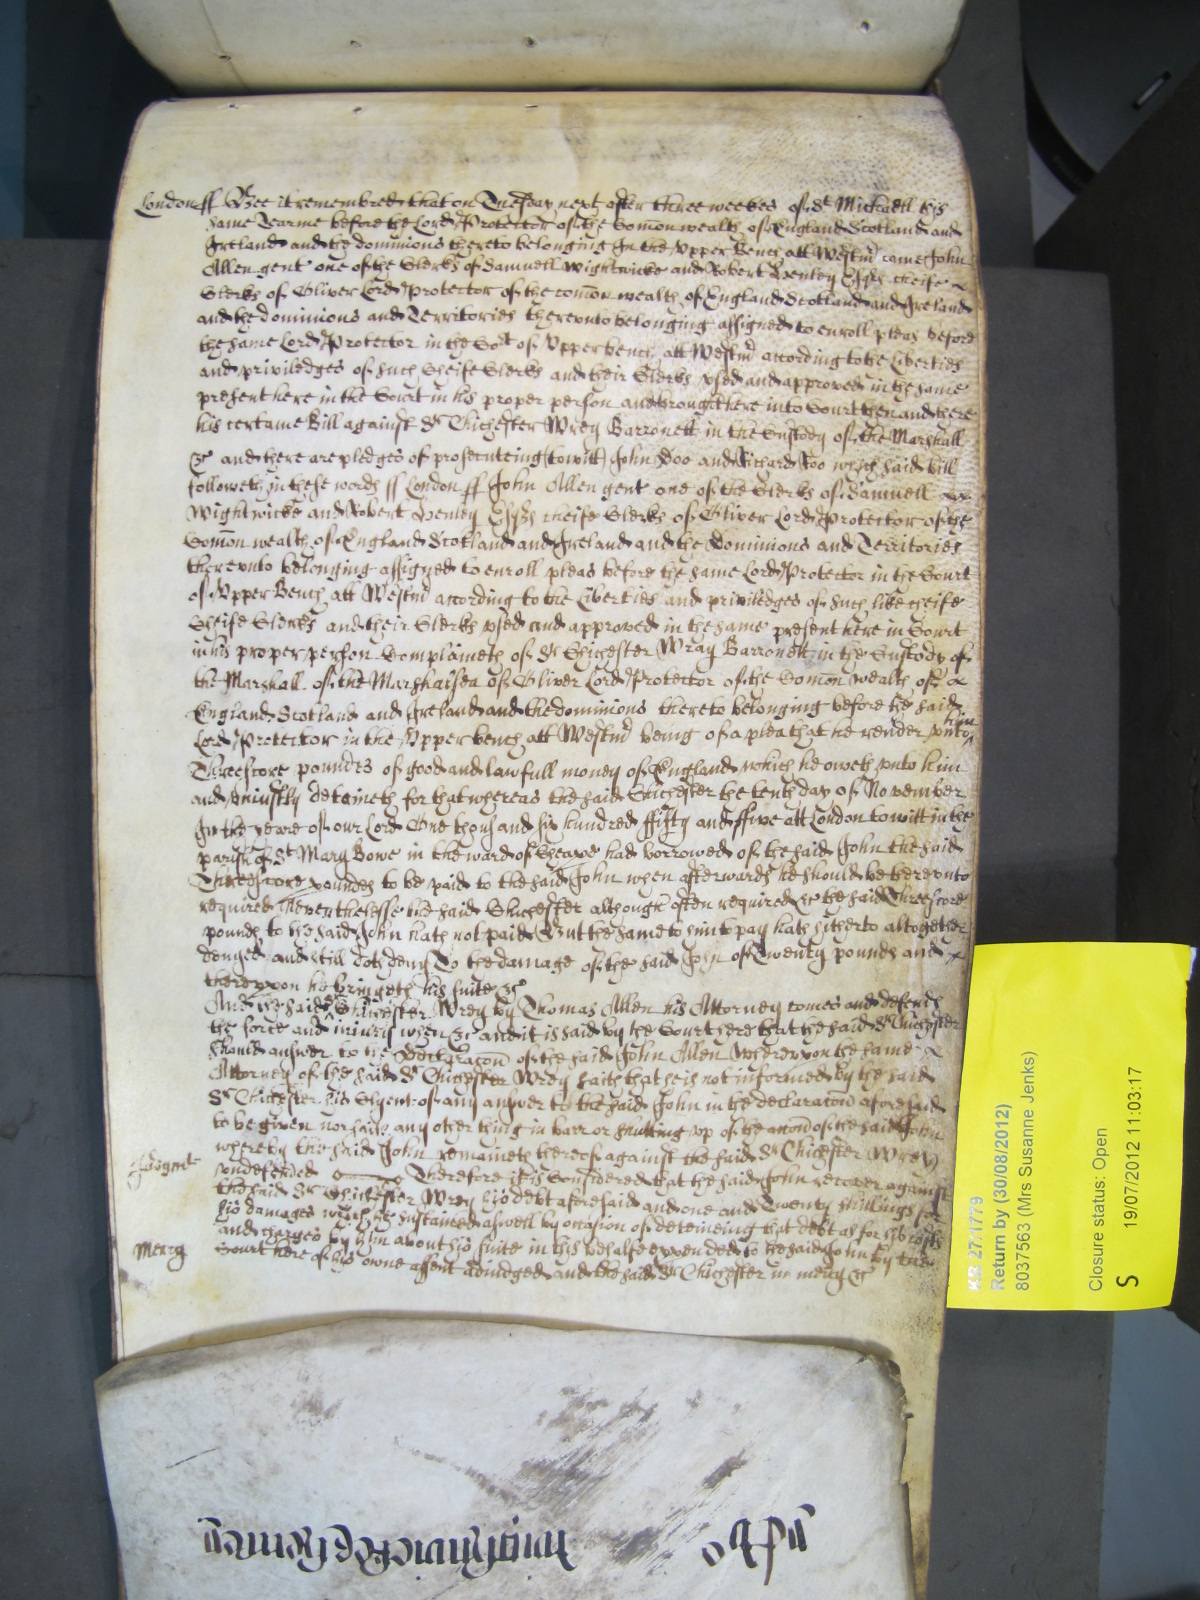 London ss Bee it remembred that on Tuesday next after three weekes of St Michaell this
same Tearme before the Lord Protector of the Com̄on wealth of England Scotland and
Ireland and the dominions thereto belonging In the Upper Bench att Westmr came John
Allen gent one of the Clerks of Samuell Wightwicke and Robert Henley Esqrs cheife
Clerks of Oliver Lord Protector of the com̄on wealth of England Scotland and Ireland
and the dominions and Territories thereunto belonging assigned to enroll pleas before
the same Lord Protector in the Cort of Upper bench att Westmr according to the Liberties
and priviledges of such Cheife Clerks and their Clerks used and approved in the same
present here in the Court in his proper person and brought here into Court then and there
his certaine Bill against Sr Chichester Wrey Barronett in the Custody of the Marshall
&c and there are pledges of prosecuteing (towitt) John Doo and Richard Roo which said bill
followeth in these words ss London ss John Allen gent one of the Clerks of Samuell
Wightwicke and Robert Henley Esqrs cheife Clerks of Oliver Lord Protector of the
Com̄on wealth of England Scotland and Ireland and the Dominions and Territories
thereunto belonging assigned to enroll pleas before the same Lord Protector in the Court
of Upper Bench att Westmr according to the Liberties and priviledges of such like cheife
Cheife Clerks and their Clerks used and approved in the same present here in Court
in his proper person Complaineth of Sr Chichester Wray Barronett in the Custody of
the Marshall of the Marshalsea of Oliver Lord Protector of the Com̄on wealth of
England Scotland and Ireland and the dominions thereto belonging before the said
Lord Protector in the Upper bench att Westmr being of a plea that he render unto him
Threescore poundes of good and lawfull money of England which he oweth unto him
and uniustly deteineth for that whereas the said Chichester the tenth day of November
In the yeare of our Lord One thousand six hundred fifty and ffive att London to witt in the
parish of St Mary Bowe in the ward of Cheape had borrowed of the said John the said
Threescore poundes to be paid to the said John when afterwards he should be thereunto
required Neverthelesse the said Chichester although often required &c the said Threescore
pounds to the said John hath not paid But the same to him to pay hath hitherto altogether
denyed and still doth deny To the damage of the said John of Twenty pounds and
thereupon he bringeth his suite &c
And the said Sr Chichester Wrey by Thomas Allen his Attorney comes and defends
the force and iniury when &c and it is said by the Court here that the said Sr Chichester
should answer to the Declaracon of the said John Allen Whereupon the same
Attorney of the said Sr Chichester Wrey saith that he is not informed by the said
Sr Chichester his Clyent of any answer to the said John in the declaracon aforesaid
to be given nor saith any other thing in barr or shutting up of the accon of the said John
whereby the said John remaineth thereof against the said Sr Chichester Wrey
Judgmt undefended Therefore it is Considered that the said John recover against
the said Sr Chichester Wrey his debt aforesaid and one and Twenty shillings for
his damages which he sustained aswell by occasion of deteineing that debt as for his costs
and charges by him about his suite in this behalfe expended to the said John by the
Mercy Court here of his owne assent adiudged and the said Sr Chichester in mercy &c
KB 27/1779
Return by (30/08/2012)
8037563 (Mrs Susanne Jenks)
Closure status: Open
S 19/07/2012 11:03:17